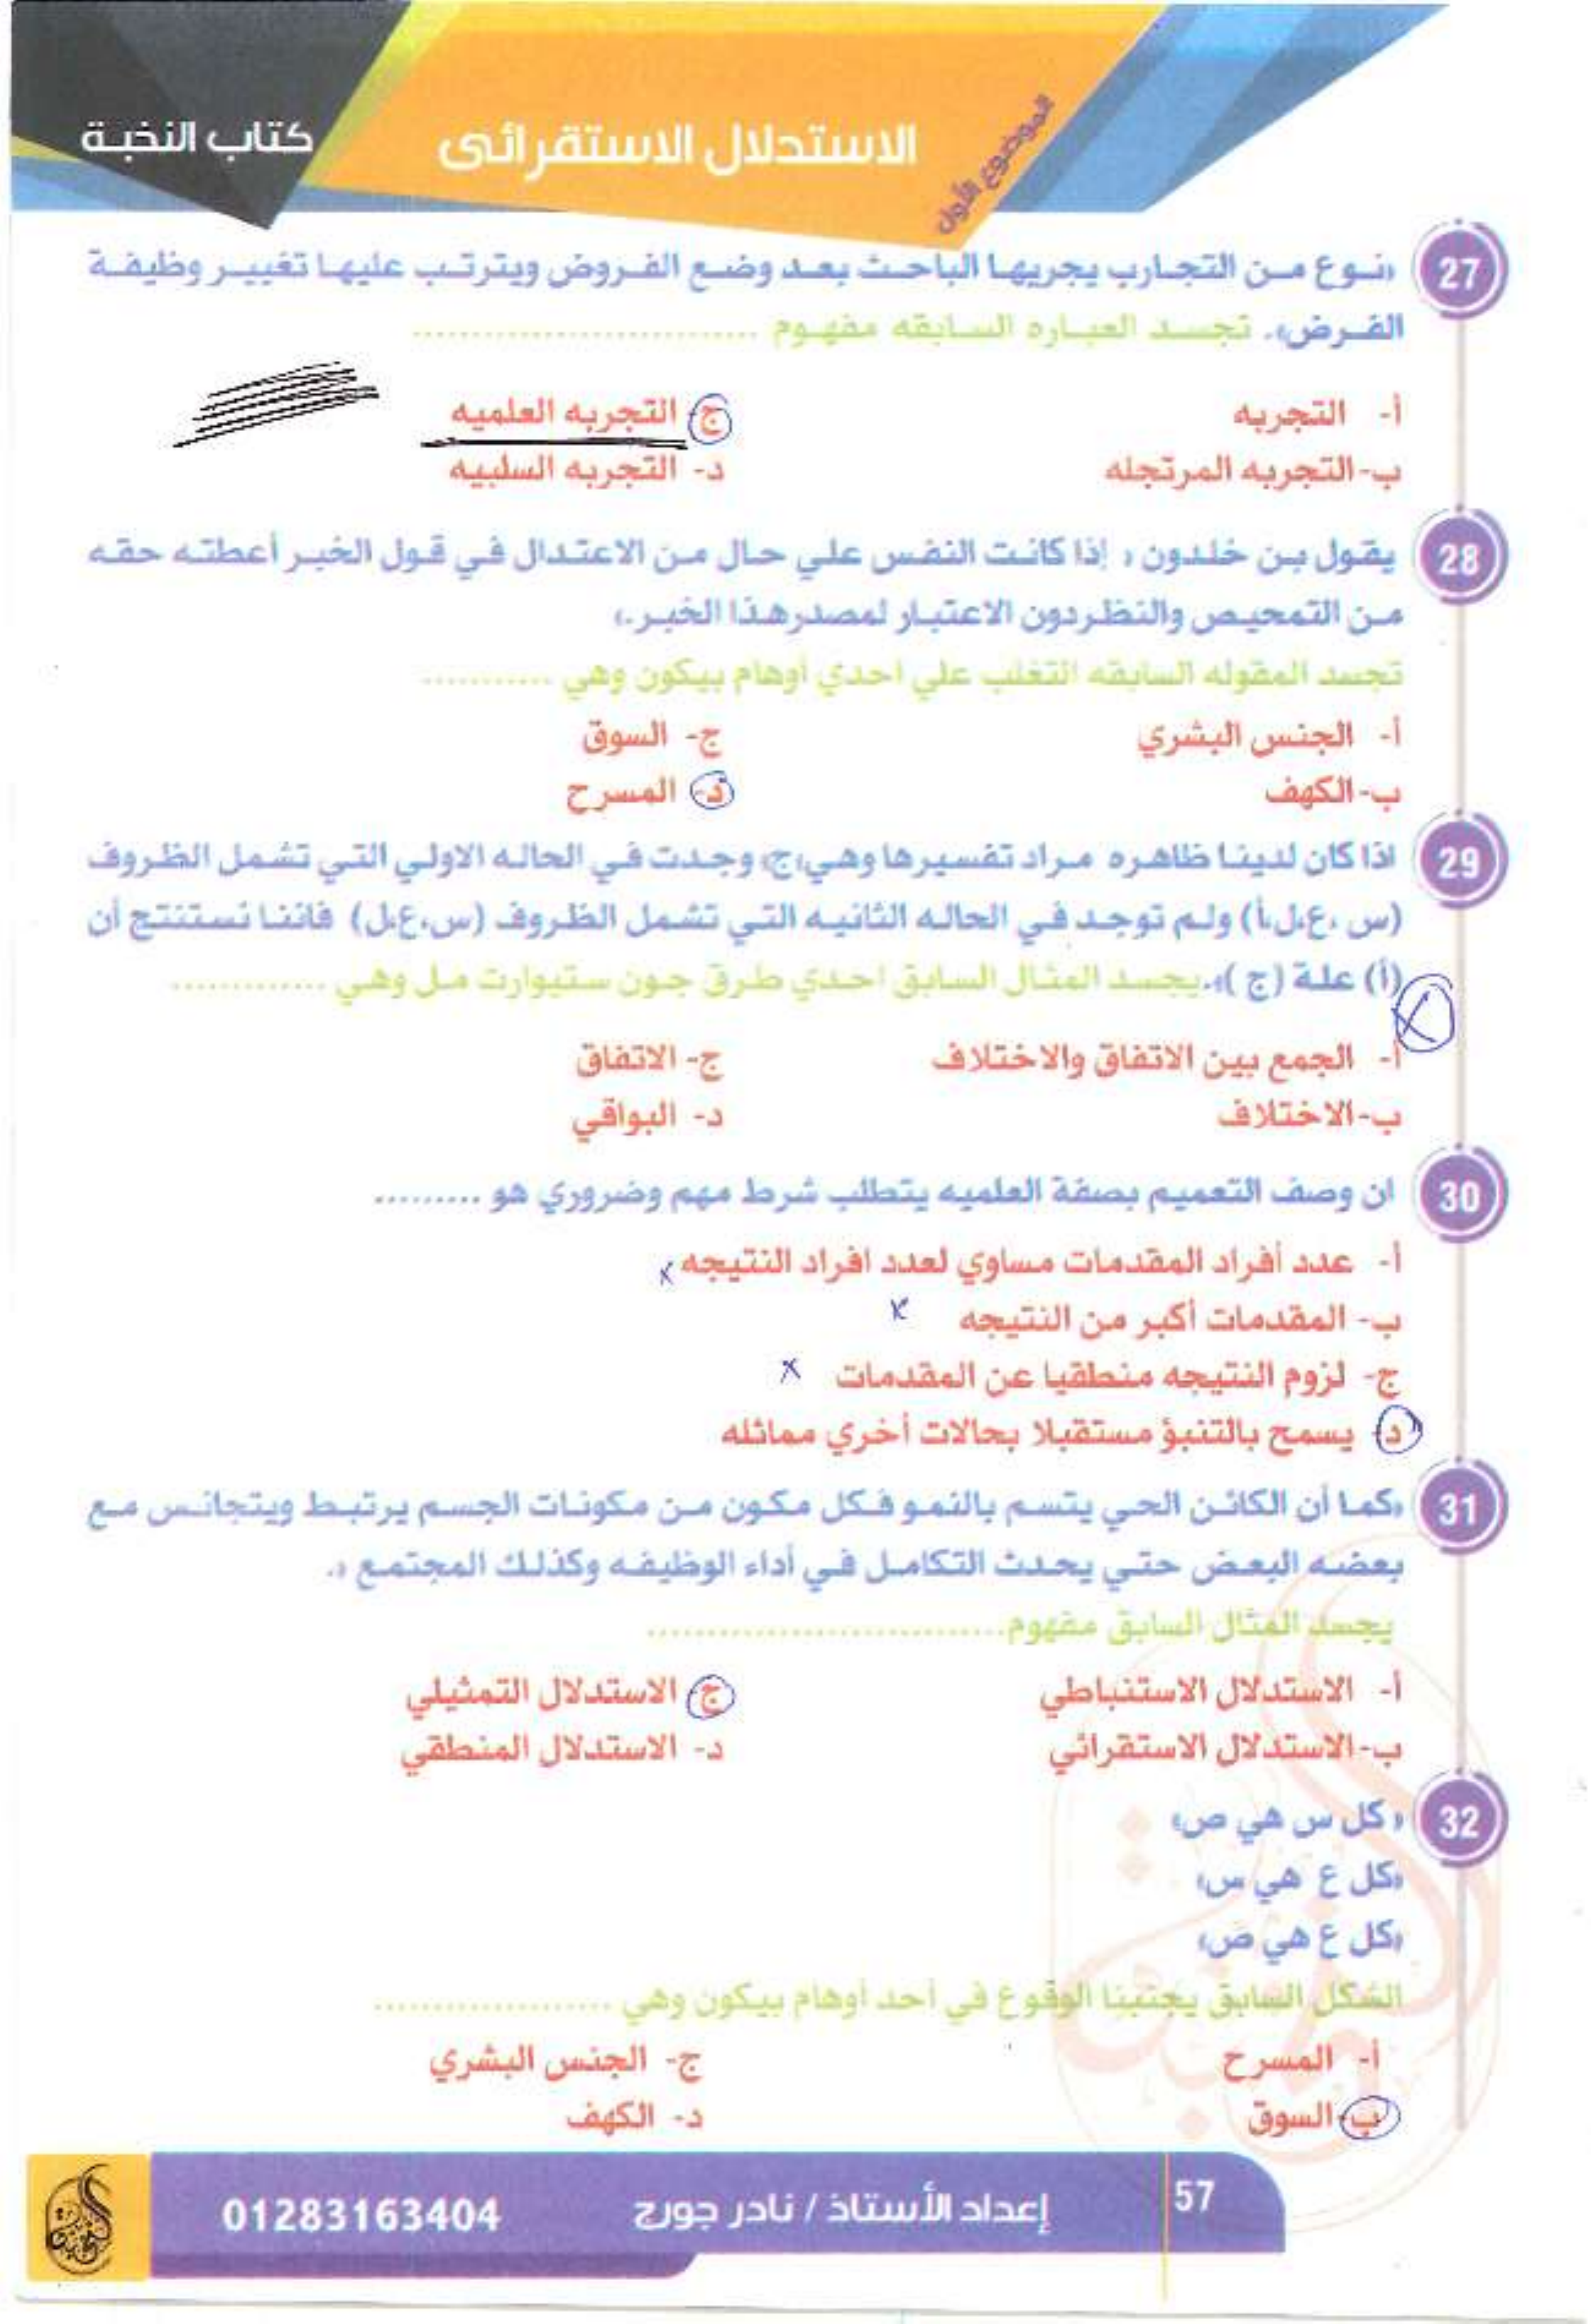 كتاب النخبة
الاستدلال الاستقرائى
الموضوع الأول
27 «نوع من التجارب يجريها الباحث بعد وضع الفروض ويترتب عليها تغيير وظيفة
الفرض». تجسد العباره السابقه مفهوم ............................
أ- التجربه
ج- التجربه العلميه
ب- التجربه المرتجله
د- التجربه السلبيه
28 يقول بن خلدون « إذا كانت النفس علي حال من الاعتدال في قول الخبر أعطته حقه
من التمحيص والنظر دون الاعتبار لمصدر هذا الخبر.»
تجسد المقوله السابقه التغلب علي احدي أوهام بيكون وهي ...........
أ- الجنس البشري
ج- السوق
ب- الكهف
د- المسرح
29 اذا كان لدينا ظاهره مراد تفسيرها وهي«ج» وجدت في الحاله الاولي التي تشمل الظروف
(س ،ع،ل،أ) ولم توجد في الحاله الثانيه التي تشمل الظروف (س،ع،ل) فاننا نستنتج أن
(أ) علة (ج )».يجسد المثال السابق احدي طرق جون ستيوارت مل وهي .............
أ- الجمع بين الاتفاق والاختلاف
ج- الاتفاق
ب- الاختلاف
د- البواقي
30 ان وصف التعميم بصفة العلميه يتطلب شرط مهم وضروري هو .........
أ- عدد أفراد المقدمات مساوي لعدد افراد النتيجه x
ب- المقدمات أكبر من النتيجه x
ج- لزوم النتيجه منطقيا عن المقدمات x
د- يسمح بالتنبؤ مستقبلا بحالات أخري مماثله
31 «كما أن الكائن الحي يتسم بالنمو فكل مكون من مكونات الجسم يرتبط ويتجانس مع
بعضه البعض حتي يحدث التكامل في أداء الوظيفه وكذلك المجتمع ».
يجسد المثال السابق مفهوم.............................
أ- الاستدلال الاستنباطي
ج- الاستدلال التمثيلي
ب- الاستدلال الاستقرائي
د- الاستدلال المنطقي
32 « كل س هي ص»
«كل ع هي س»
«كل ع هي ص»
الشكل السابق يجنبنا الوقوع في أحد أوهام بيكون وهي ...................
أ- المسرح
ج- الجنس البشري
ب- السوق
د- الكهف
57
إعداد الأستاذ / نادر جورج
01283163404